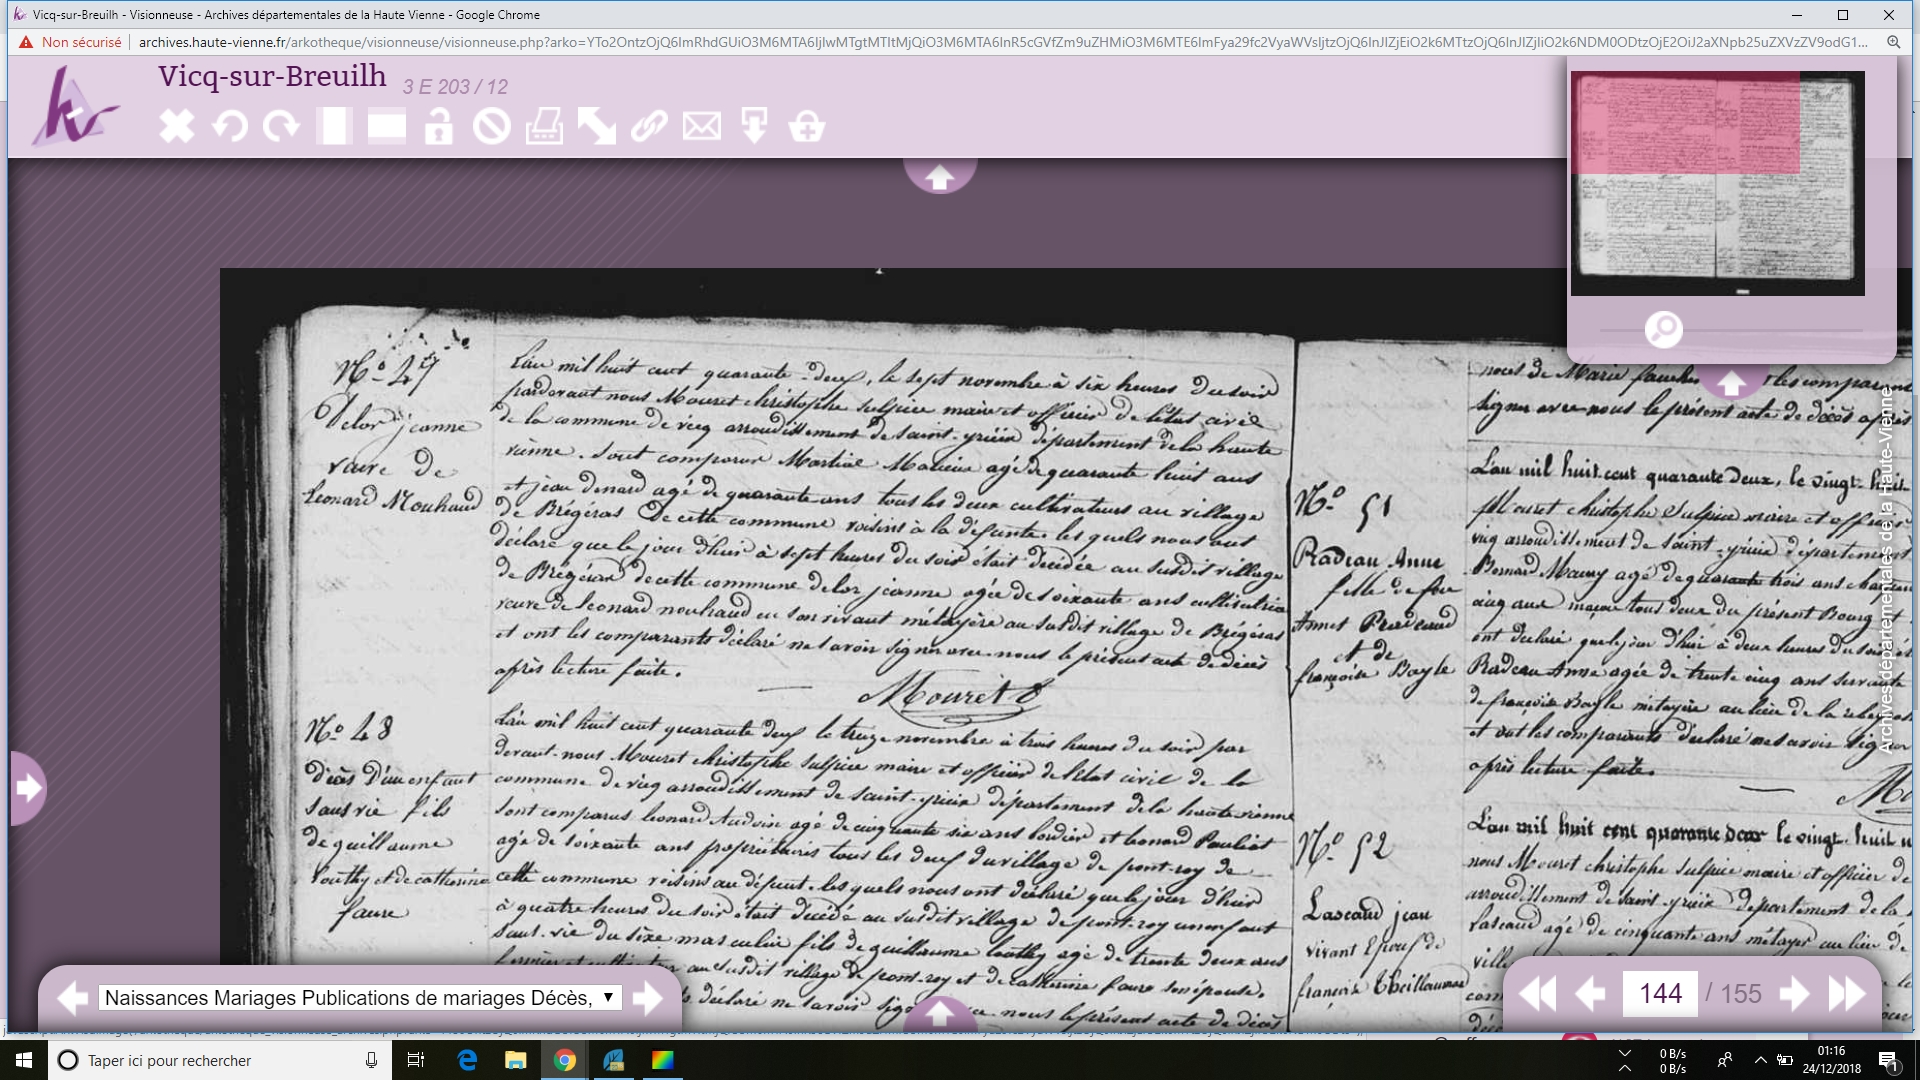 Vicq-sur-Breuilh - Visionneuse - Archives départementales de la Haute Vienne - Google Chrome
Non sécurisé archives.haute-vienne.fr/arkotheque/visionneuse/visionneuse.php?arko=
Vicq-sur-Breuilh 3 E 203 / 12
N.o 47
Delor jeanne
veuve de
Leonard Mouhaud
L'an mil huit cent quarante-deux, le sept novembre à six heures du soir
pardevant nous Mouret christophe sulpice maire et officier de l'état civil
de la commune de vicq arrondissement de saint-yrieix département de la haute
vienne. Sont comparus Martial agé de quarante huit ans
et jean agé de quarante ans tous les deux cultivateurs au village
de Brégéras de cette commune voisins à la défunte. les quels nous ont
déclaré que le jour d'hui à sept heures du soir était décédée au susdit village
de Brégéras de cette commune delor jeanne agée de soixante ans cultivatrice
veuve de leonard nouhaud en son vivant métayère au susdit village de Brégéras
et ont les comparants déclaré ne savoir signer avec nous le présent acte de décès
après lecture faite.
Mouret
N.o 48
décès d'un enfant
sans vie fils
de guillaume
et de catherine
faure
L'an mil huit cent quarante deux le treize novembre à trois heures du soir par
devant-nous Mouret christophe sulpice maire et officier de l'état civil de la
commune de vicq arrondissement de saint-yrieix département de la haute vienne
sont comparus leonard agé de cinquante six ans et leonard Pauliat
agé de soixante ans propriétaires tous les deux du village de pont-roy de
cette commune voisins au défunt. les quels nous ont déclaré que le jour d'hui
à quatre heures du soir était décédé au susdit village de pont-roy un enfant
sans-vie du sixe masculin fils de guillaume agé de trente deux ans
au susdit village de pont-roy et de catherine faure son épouse.
déclaré ne savoir nous le présent acte de décès
N.o 51
Radeau Anne
fille de feu
Annet
et de
françoise Bayle
noces de Marie les comparants
signer avec nous le présent acte de décès après
L'an mil huit cent quarante deux, le vingt-huit
Mouret christophe Sulpice maire et officier
vicq arrondissement de saint-yrieix département
Bernard Maury agé de quarante trois ans
cinq ans tous deux du présent Bourg
ont déclaré que le jour d'hui à deux heures du soir
Radeau Anne agée de trente cinq ans servante
de françoise Bayle métayère au lieu de la
et ont les comparants déclaré ne savoir
après lecture faite.
N.o 52
Lascaud jean
vivant Epoux de
françoise
L'an mil huit cent quarante deux le vingt-huit
nous Mouret christophe sulpice maire et officier de
arrondissement de saint-yrieix département de la
lascaud agé de cinquante ans métayer au lieu de
Archives départementales de la Haute-Vienne
Naissances Mariages Publications de mariages Décès,
144 / 155
Taper ici pour rechercher
0 B/s
0 B/s
01:16
24/12/2018
1